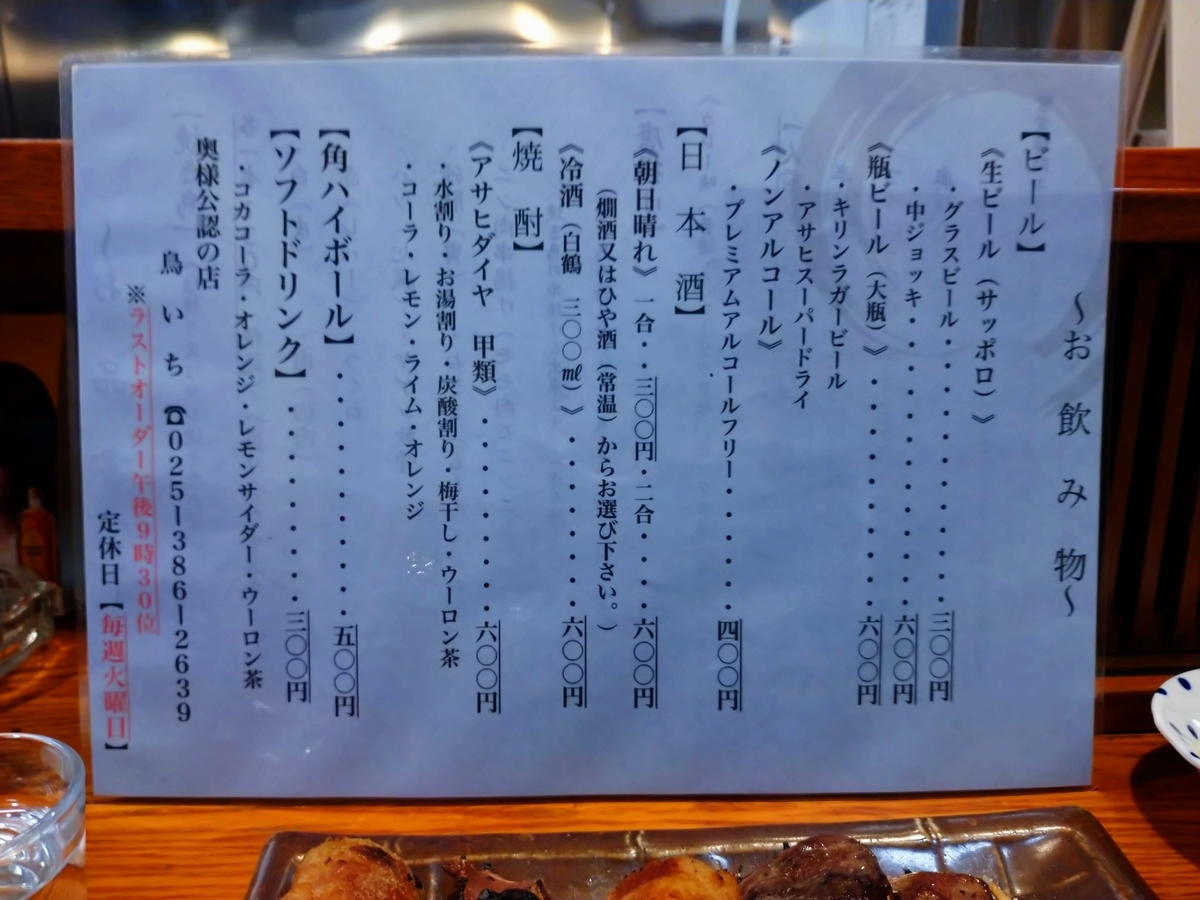 ～お飲み物～
【ビール】
《生ビール（サッポロ）》
・グラスビール・・・・・・・・・・・・三〇〇円
・中ジョッキ・・・・・・・・・・・・・六〇〇円
《瓶ビール（大瓶）》・・・・・・・・・・六〇〇円
・キリンラガービール
・アサヒスーパードライ
《ノンアルコール》
・プレミアムアルコールフリー・・・・・・四〇〇円
【日本酒】
《朝日晴れ》一合・・三〇〇円・二合・・・・六〇〇円
（燗酒又はひや酒（常温）からお選び下さい。）
《冷酒（白鶴　三〇〇㎖）》・・・・・・・・六〇〇円
【焼酎】
《アサヒダイヤ　甲類》・・・・・・・・・六〇〇円
・水割り・お湯割り・炭酸割り・梅干し・ウーロン茶
・コーラ・レモン・ライム・オレンジ
【角ハイボール】・・・・・・・・・・五〇〇円
【ソフトドリンク】・・・・・・・・・三〇〇円
・コカコーラ・オレンジ・レモンサイダー・ウーロン茶
奥様公認の店
鳥いち ☎025ー386ー2639
※ラストオーダー午後9時30位
定休日【毎週火曜日】